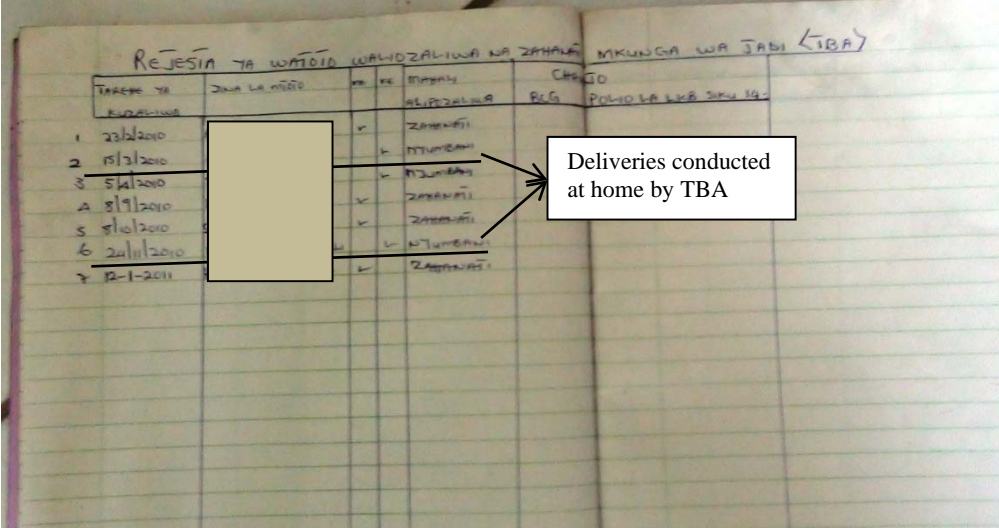 REJESTA YA WATOTO WALIOZALIWA NA ZAHANATI MKUNGA WA JADI (TBA)
TAREHE YA JINA LA MTOTO ME KE MAHALI CHANJO
KUZALIWA ALIPOZALIWA BCG POLIO LA
1 23/2/2010 ZAHANATI
2 15/3/2010 NYUMBANI
3 5/4/2010 NYUMBANI
4 8/9/2010 ZAHANATI
5 5/10/2010 ZAHANATI
6 24/11/2010 NYUMBANI
7 12-1-2011 ZAHANATI
Deliveries conducted
at home by TBA